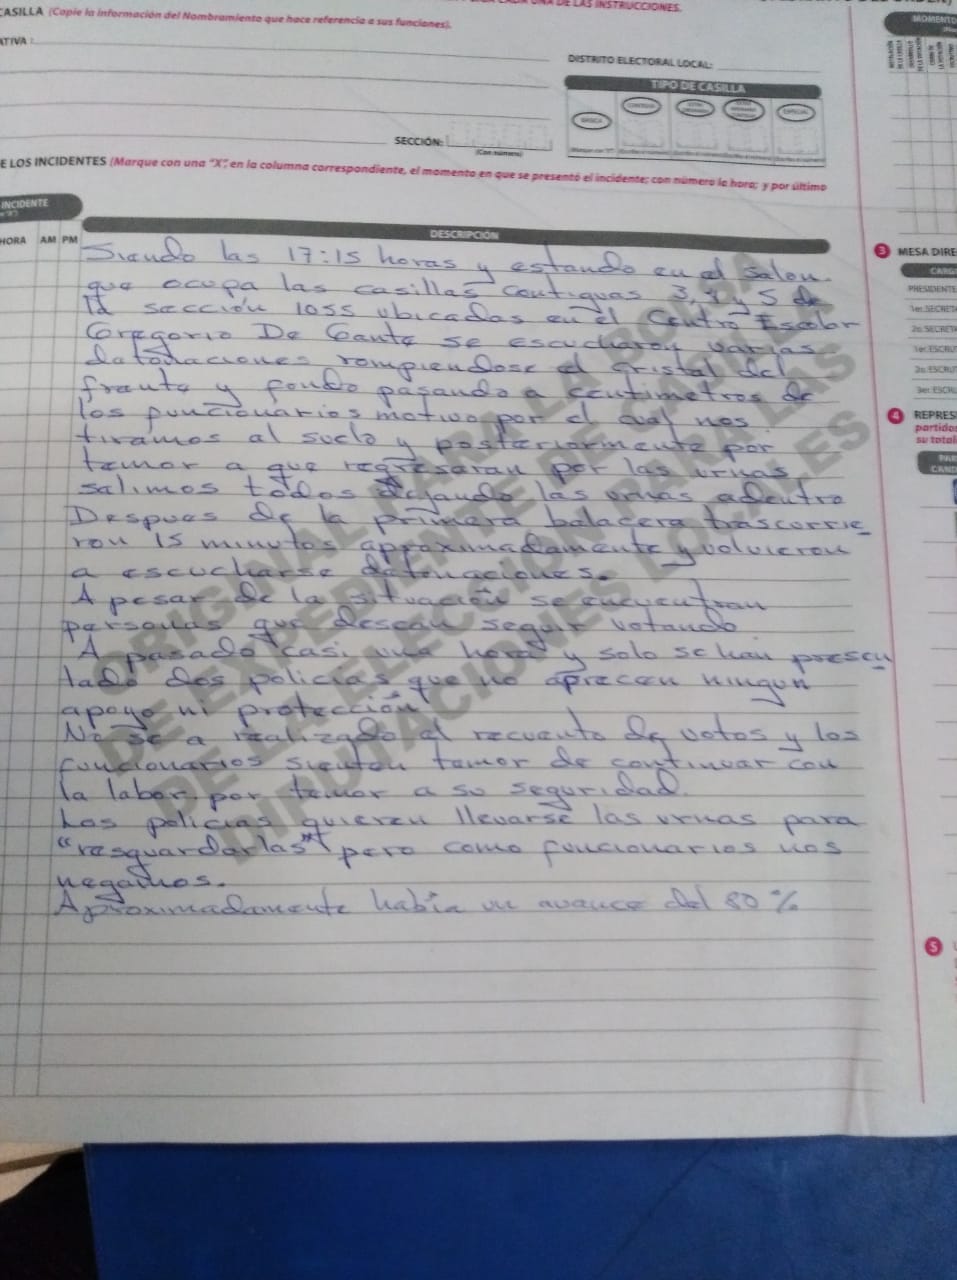 CASILLA (Copie la información del Nombramiento que hace referencia a sus funciones).
ATIVA :
DISTRITO ELECTORAL LOCAL:
TIPO DE CASILLA
BÁSICA
ESPECIAL
SECCIÓN:
(Con número)
E LOS INCIDENTES (Marque con una "X", en la columna correspondiente, el momento en que se presentó el incidente; con número la hora; y por último
INCIDENTE
HORA AM PM
DESCRIPCIÓN
Siendo las 17:15 horas y estando en el salon
que ocupa las casillas contiguas 3, 4 y 5 de
la sección 1055 ubicadas en el Centro Escolar
Gregorio De Gante se escucharon varias
detonaciones rompiendose el cristal del
frente y fondo pasando a centimetros de
los funcionarios motivo por el cual nos
tiramos al suelo y posteriormente por
temor a que regresaran por las urnas
salimos todos dejando las urnas adentro
Despues de la primera balacera trascurrie
ron 15 minutos approximadamente y volvieron
a escucharse detonaciones.
A pesar de la situación se encuentran
personas que desean seguir votando
A pasado casi una hora y solo se han presen
tado dos policias que no ofrecen ningun
apoyo ni protección
No se a realizado el recuento de votos y los
funcionarios sienten temor de continuar con
la labor por temor a su seguridad.
Los policias quieren llevarse las urnas para
"resguardarlas" pero como funcionarios nos
negamos.
Aproximadamente habia un avance del 80%
ORIGINAL PARA LA BOLSA
DE EXPEDIENTE DE CASILLA
DE LA ELECCIÓN PARA LAS
DIPUTACIONES LOCALES
MOMENTO
3 MESA DIRE
CARG
PRESIDENTE
1er. SECRET
2o. SECRETA
1er. ESCRU
2o. ESCRUT
3er. ESCRU
4 REPRES
partido
su total
PAR
CAND
5